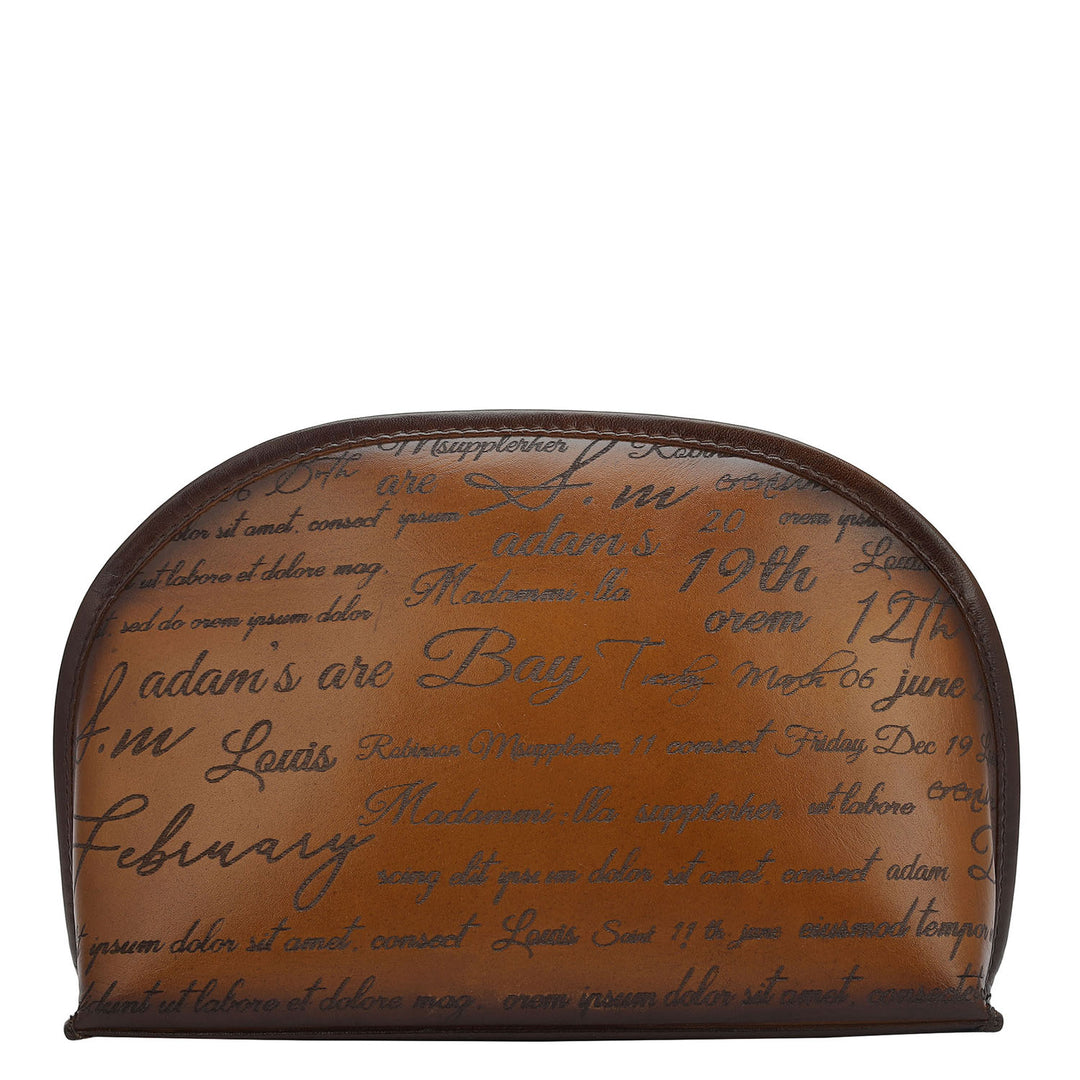 Msupplerher
are S.m
dolor sit amet, consect ipsum adam's 20 orem
ut labore et dolore mag, Madammi;lla 19th Louis
sed do orem ipsum dolor orem 12th
adam's are Bay Tuesday March 06 june
S.m Louis Robinson Msupplerher 11 consect Friday Dec 19
February Madammi;lla supplerher ut labore
scing elit ipsum dolor sit amet, consect adam
ipsum dolor sit amet, consect Louis 11 th june eiusmod tempor
didunt ut labore et dolore mag, orem ipsum dolor sit amet, consectet